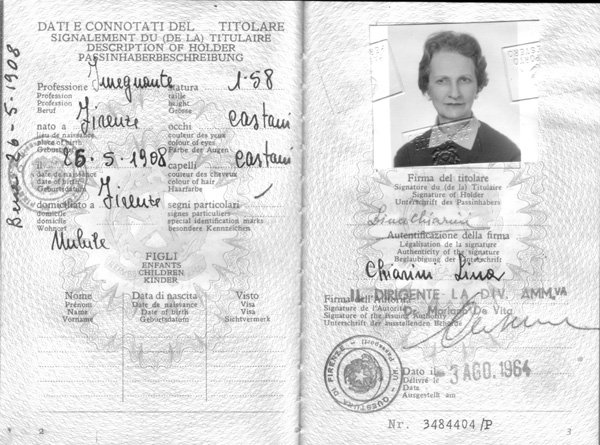 DATI E CONNOTATI DEL TITOLARE
SIGNALEMENT DU (DE LA) TITULAIRE
DESCRIPTION OF HOLDER
PASSINHABERBESCHREIBUNG
Professione Insegnante
Profession
Profession
Beruf
statura 1.58
taille
height
Grösse
nato a Firenze
lieu de naissance
place of birth
Geburtsort
occhi castani
couleur des yeux
colour of eyes
Farbe der Augen
il 26.5.1908
date de naissance
date of birth
Geburtsdatum
capelli castani
couleur des cheveux
colour of hair
Haarfarbe
domiciliato a Firenze
domicile
domicile
Wohnort
segni particolari
signes particuliers
special identification marks
besondere Kennzeichen
Nubile
26-5-1908
FIGLI
ENFANTS
CHILDREN
KINDER
Nome Data di nascita Visto
Prénom Date de naissance Visa
Name Date of birth Visa
Vorname Geburtsdatum Sichtvermerk
2
Firma del titolare
Signature du (de la) Titulaire
Signature of Holder
Unterschrift des Passinhabers
Lina Chiarini
Autenticazione della firma
Légalisation de la signature
Authenticity of the signature
Beglaubigung der Unterschrift
Chiarini Lina
IL DIRIGENTE LA DIV. AMM.VA
Firma dell'Autorità
Signature de l'Autorité
Signature of the Issuing Authority
Unterschrift der ausstellenden Behörde
Dr. Mariano De Vita
QUESTURA DI FIRENZE
Dato il -3 AGO. 1964
Délivré le
Date
Ausgestellt am
Nr. 3484404/P
3